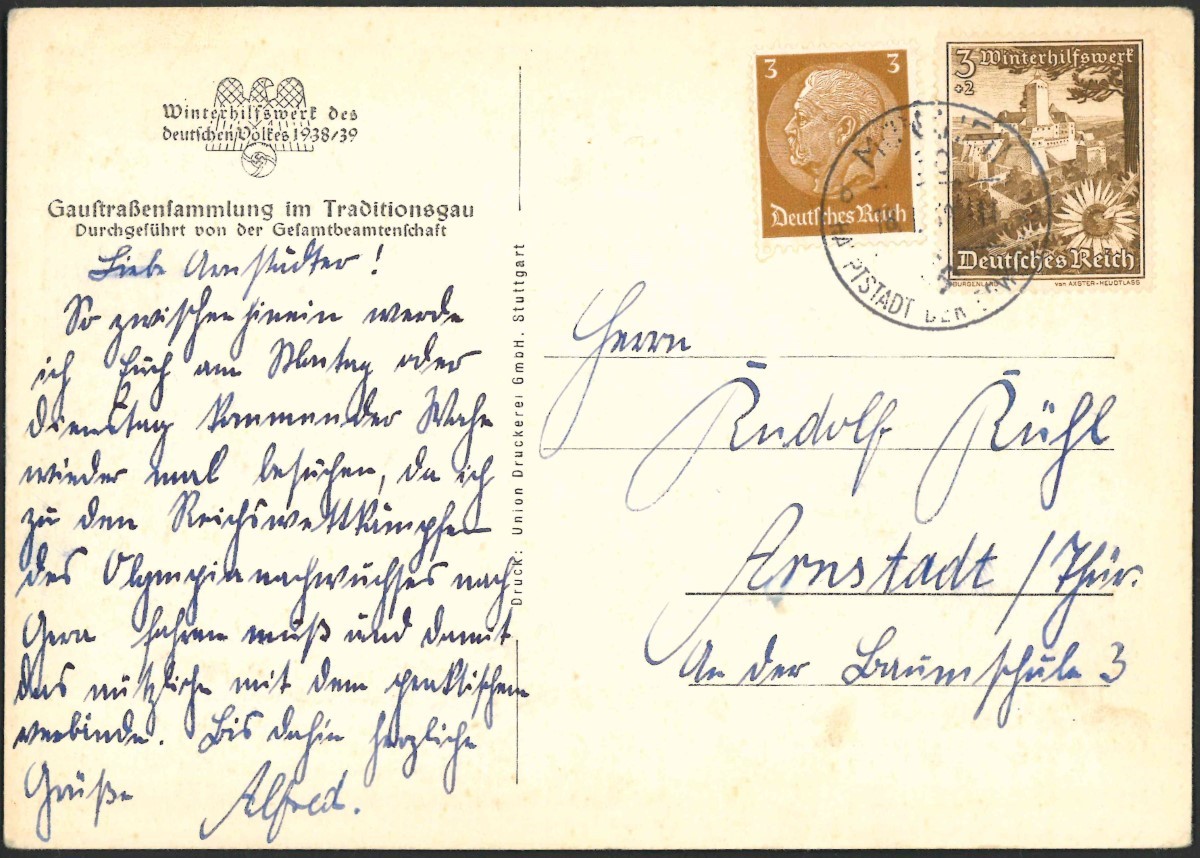 Winterhilfswerk des
deutschen Volkes 1938/39
Gaustraßensammlung im Traditionsgau
Durchgeführt von der Gesamtbeamtenschaft
Liebe Arnstädter!
So zwischenhinein werde
ich Euch am Montag oder
Dienstag kommender Woche
wieder mal besuchen, da ich
zu den Reichswettkämpfen
des Olympianachwuchses nach
Gera fahren muß und damit
das nützliche mit dem praktischen
verbinde. Bis dahin herzliche
Grüße Alfred.
Druck: Union Druckerei GmbH. Stuttgart
3 3
Deutsches Reich
3 Winterhilfswerk
+2
Deutsches Reich
BURGENLAND von AXSTER-HEUDTLASS
MÜNCHEN
HAUPTSTADT DER
Herrn
Rudolf Rühl
Arnstadt / Thür.
An der Baumschule 3